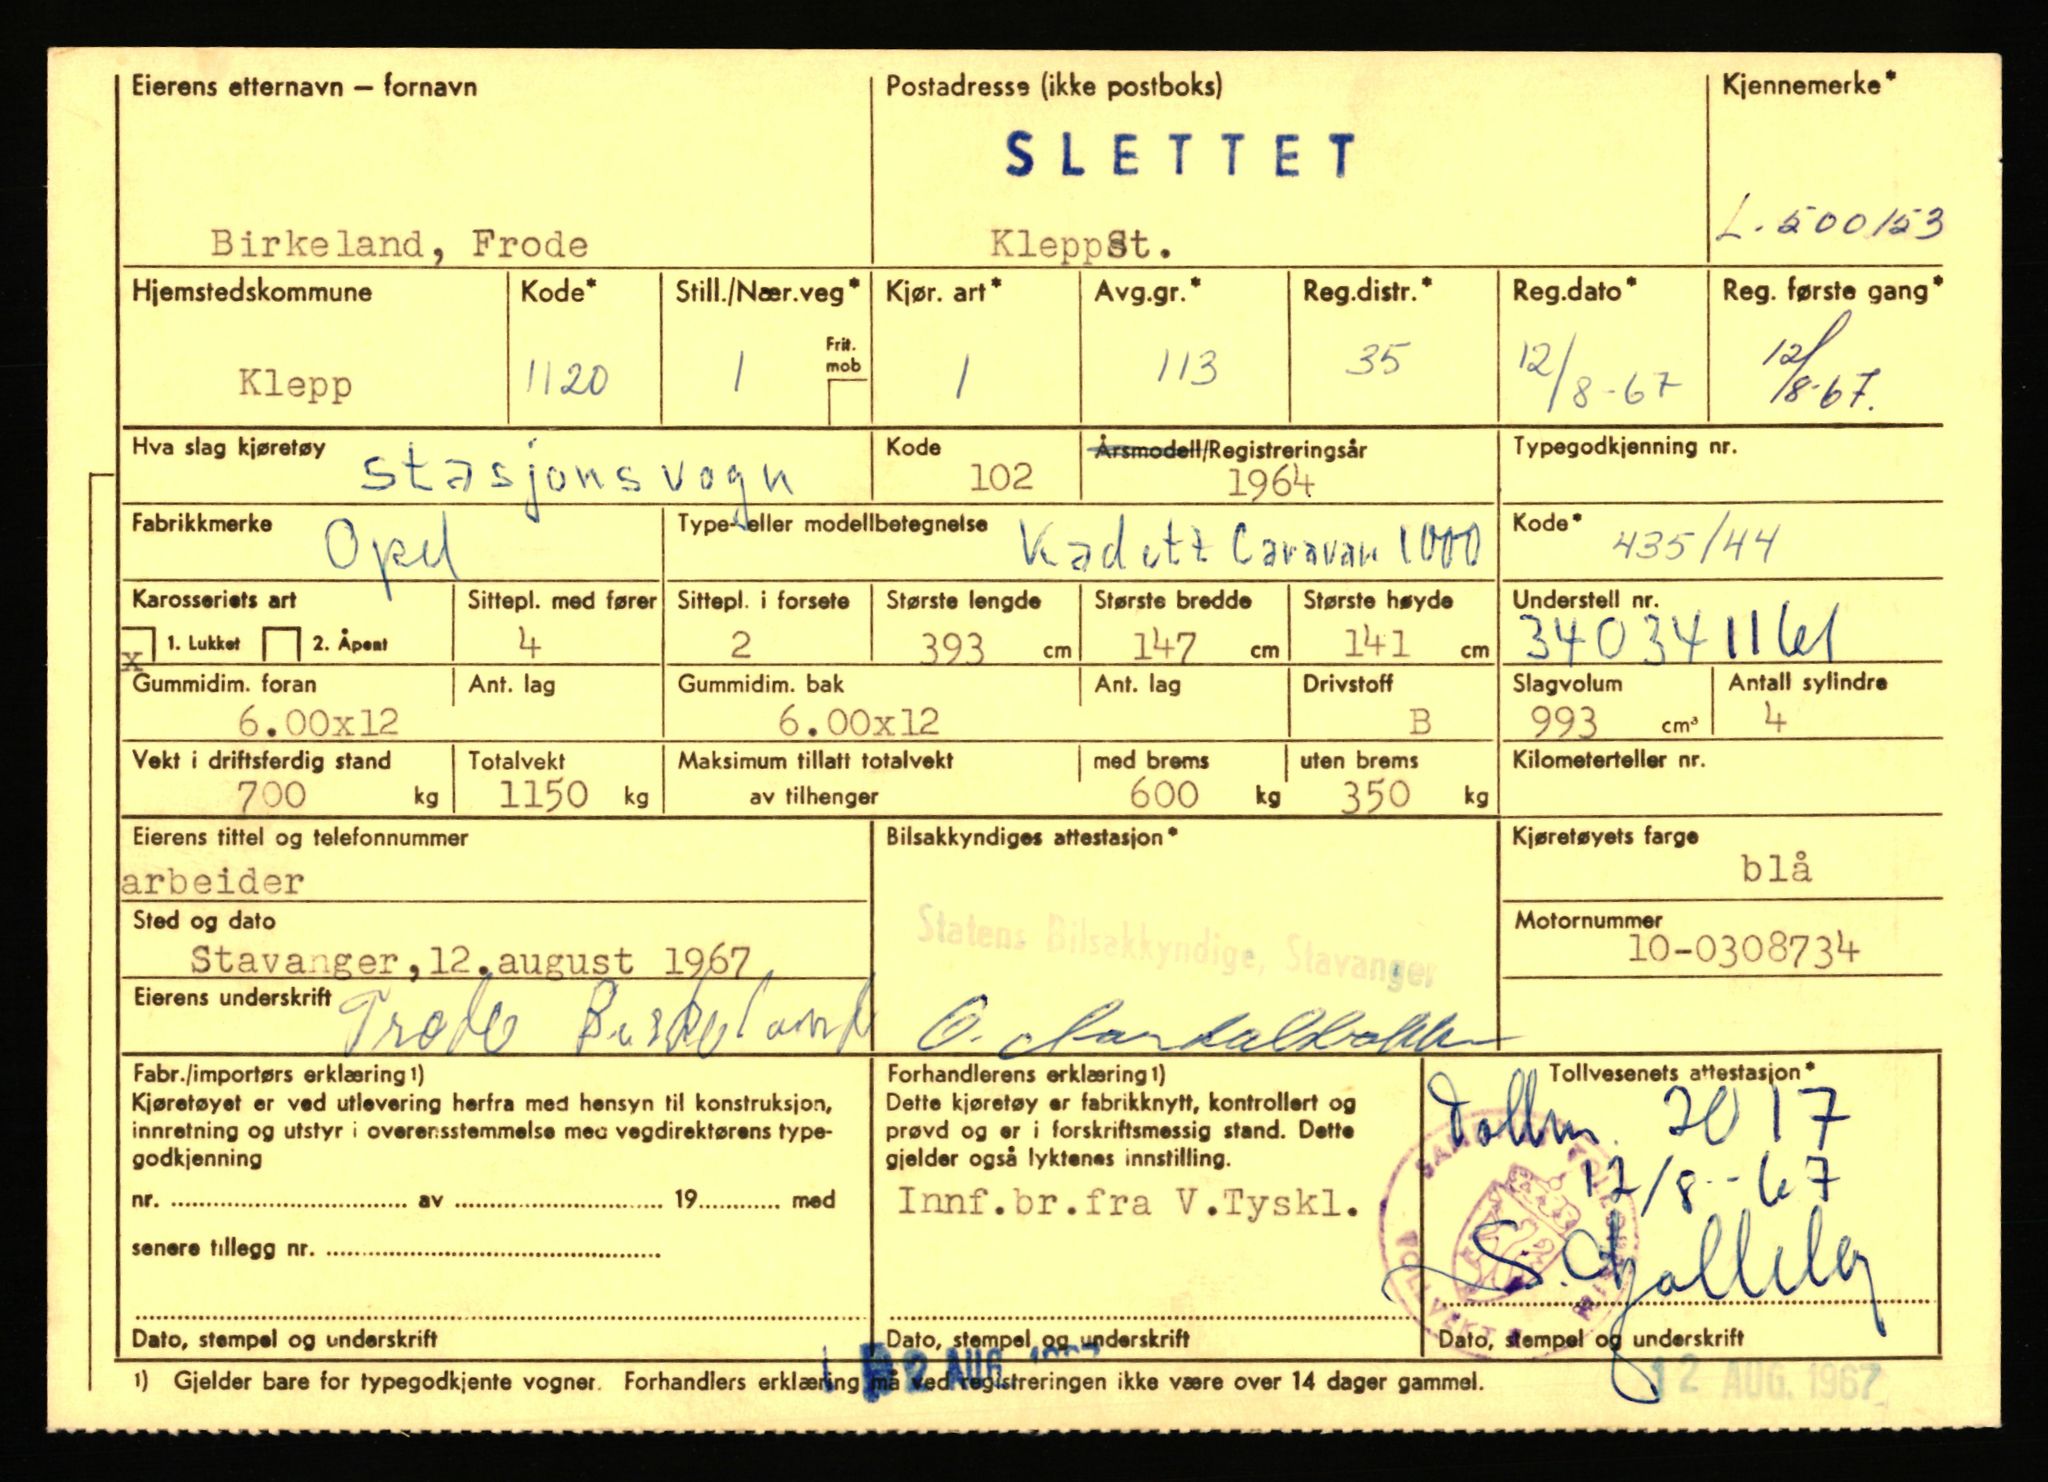 Eierens etternavn – fornavn
Postadresse (ikke postboks)
Kjennemerke*
SLETTET
Birkeland, Frode
KleppSt.
L-500153
Hjemstedskommune
Kode*
Still./Nær.veg*
Kjør. art*
Avg.gr.*
Reg.distr.*
Reg.dato*
Reg. første gang*
Frit. mob
Klepp
1120
1
1
113
35
12/8-67
12/8-67.
Hva slag kjøretøy
Kode
Årsmodell/Registreringsår
Typegodkjenning nr.
stasjonsvogn
102
1964
Fabrikkmerke
Type- eller modellbetegnelse
Kode*
Opel
Kadett Caravan 1000
435/44
Karosseriets art
Sittepl. med fører
Sittepl. i forsete
Største lengde
Største bredde
Største høyde
Understell nr.
x 1. Lukket 2. Åpent
4
2
393 cm
147 cm
141 cm
340341161
Gummidim. foran
Ant. lag
Gummidim. bak
Ant. lag
Drivstoff
Slagvolum
Antall sylindre
6.00x12
6.00x12
B
993 cm³
4
Vekt i driftsferdig stand
Totalvekt
Maksimum tillatt totalvekt
med brems
uten brems
Kilometerteller nr.
700 kg
1150 kg
av tilhenger
600 kg
350 kg
Eierens tittel og telefonnummer
Bilsakkyndiges attestasjon*
Kjøretøyets farge
arbeider
blå
Sted og dato
Statens Bilsakkyndige, Stavanger
Motornummer
Stavanger, 12. august 1967
10-0308734
Eierens underskrift
Frode Birkeland
Fabr./importørs erklæring 1)
Kjøretøyet er ved utlevering herfra med hensyn til konstruksjon,
innretning og utstyr i overensstemmelse med vegdirektørens type-
godkjenning
nr. av 19 med
senere tillegg nr.
Dato, stempel og underskrift
Forhandlerens erklæring 1)
Dette kjøretøy er fabrikknytt, kontrollert og
prøvd og er i forskriftsmessig stand. Dette
gjelder også lyktenes innstilling.
Innf.br.fra V.Tyskl.
Dato, stempel og underskrift
Tollvesenets attestasjon*
Tollm. 2017
12/8-67
TOLLVAKT
Dato, stempel og underskrift
2 AUG.
12 AUG. 1967
1) Gjelder bare for typegodkjente vogner. Forhandlers erklæring må ved registreringen ikke være over 14 dager gammel.